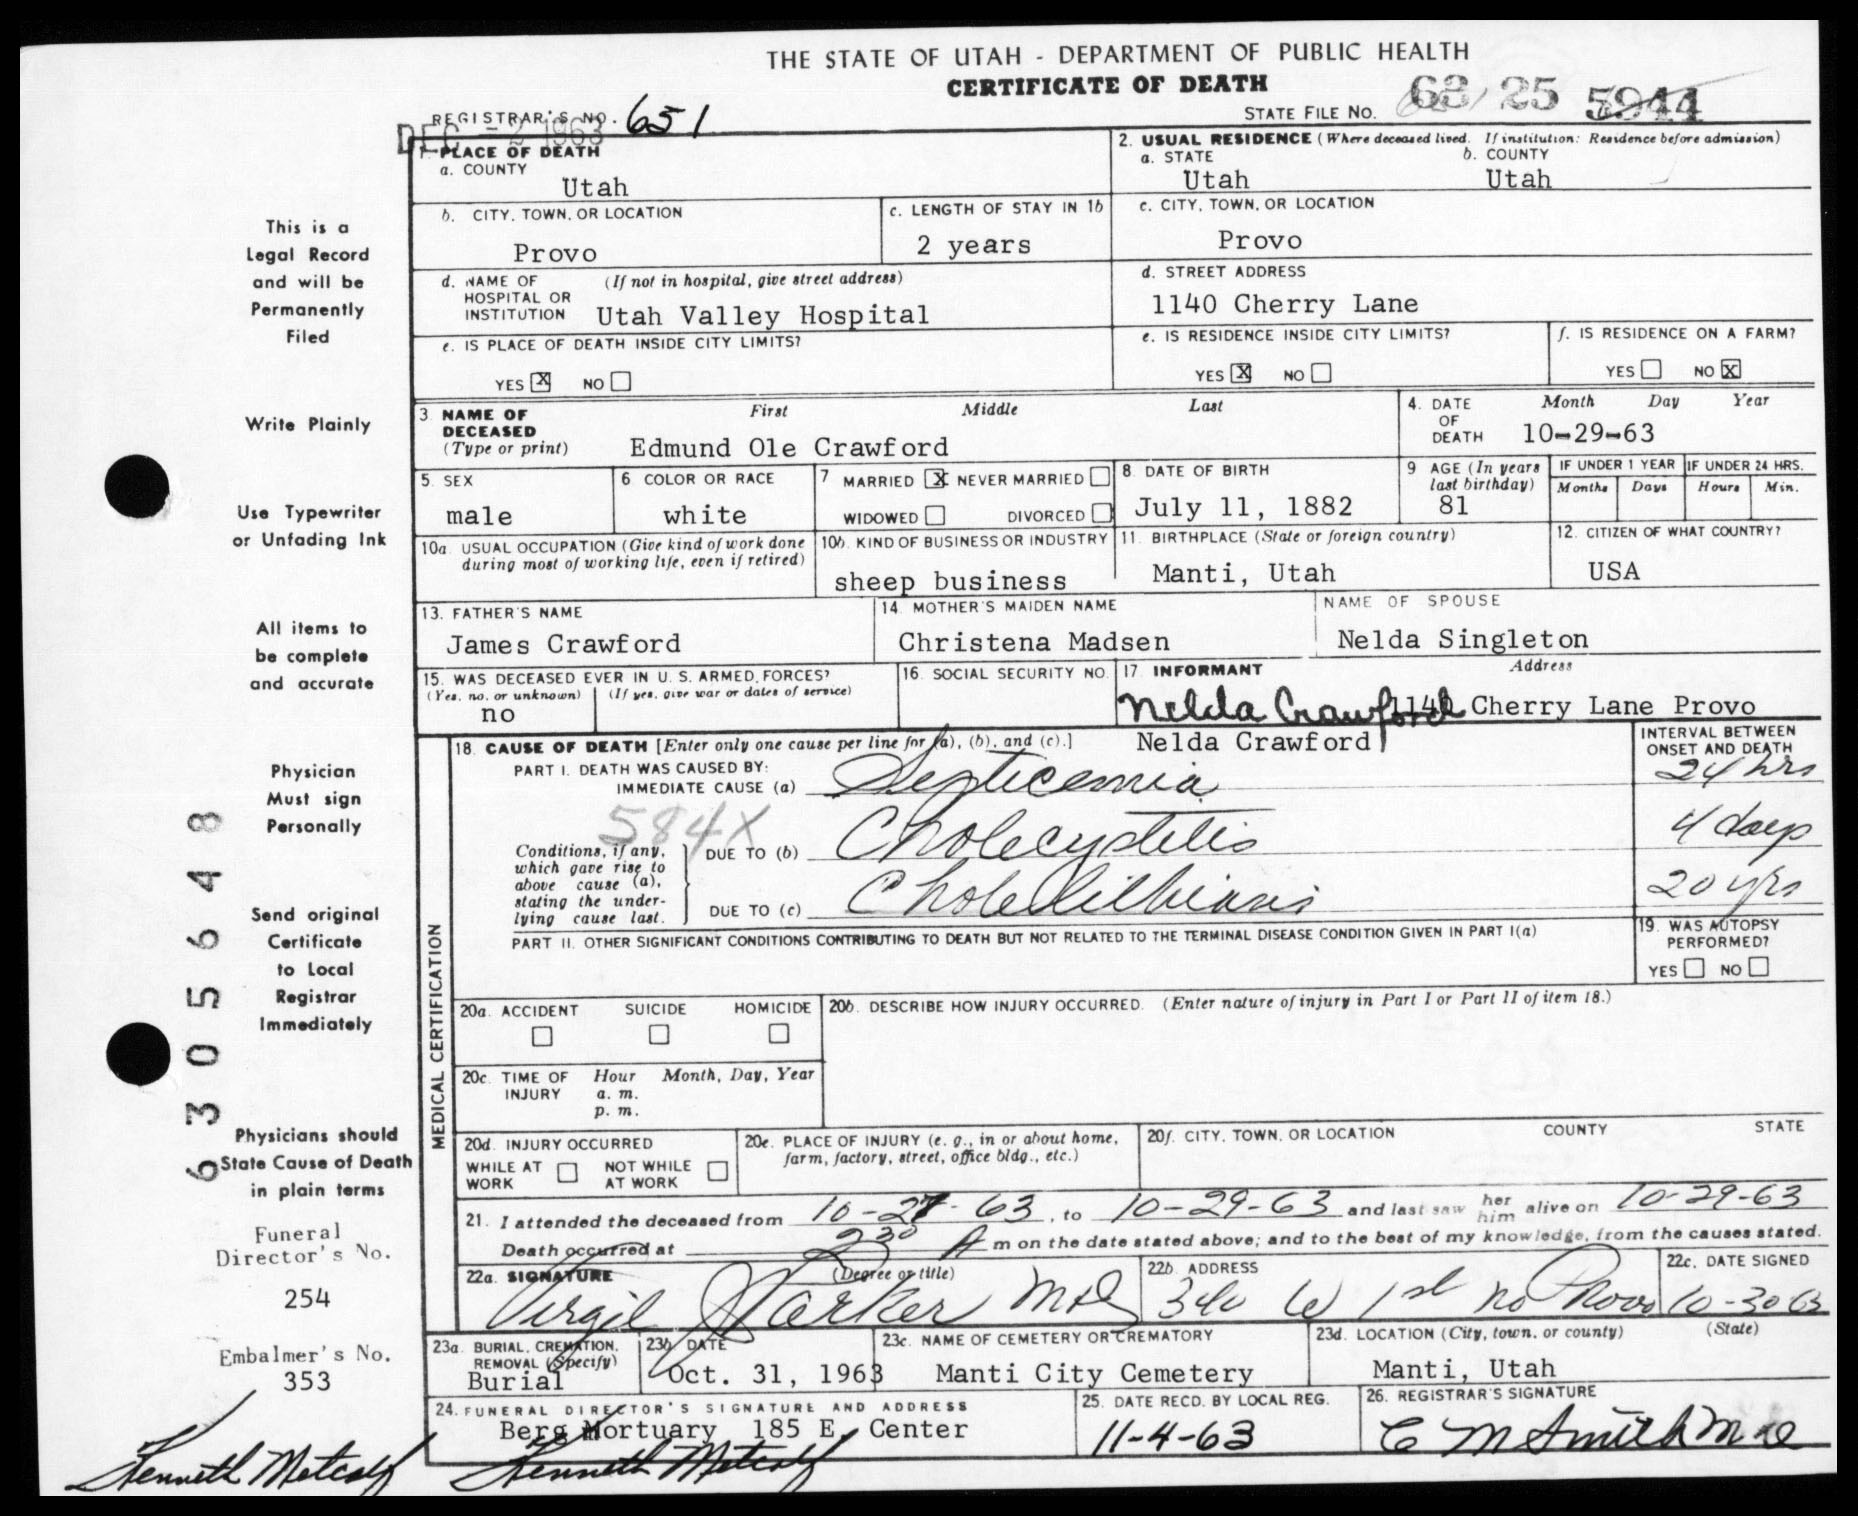 THE STATE OF UTAH - DEPARTMENT OF PUBLIC HEALTH
CERTIFICATE OF DEATH
STATE FILE NO. 63 25 5944
REGISTRAR'S NO. 651
DEC -2 1963
1. PLACE OF DEATH
a. COUNTY
Utah
2. USUAL RESIDENCE (Where deceased lived. If institution: Residence before admission)
a. STATE b. COUNTY
Utah Utah
b. CITY, TOWN, OR LOCATION
Provo
c. LENGTH OF STAY IN 1b
2 years
c. CITY, TOWN, OR LOCATION
Provo
d. NAME OF HOSPITAL OR INSTITUTION (If not in hospital, give street address)
Utah Valley Hospital
d. STREET ADDRESS
1140 Cherry Lane
e. IS PLACE OF DEATH INSIDE CITY LIMITS?
YES X NO
e. IS RESIDENCE INSIDE CITY LIMITS?
YES X NO
f. IS RESIDENCE ON A FARM?
YES NO X
3 NAME OF DECEASED (Type or print) First Middle Last
Edmund Ole Crawford
4. DATE OF DEATH Month Day Year
10-29-63
5. SEX
male
6 COLOR OR RACE
white
7 MARRIED X NEVER MARRIED
WIDOWED DIVORCED
8 DATE OF BIRTH
July 11, 1882
9 AGE (In years last birthday)
81
IF UNDER 1 YEAR
Months Days
IF UNDER 24 HRS.
Hours Min.
10a. USUAL OCCUPATION (Give kind of work done during most of working life, even if retired)
10b. KIND OF BUSINESS OR INDUSTRY
sheep business
11. BIRTHPLACE (State or foreign country)
Manti, Utah
12. CITIZEN OF WHAT COUNTRY?
USA
13. FATHER'S NAME
James Crawford
14. MOTHER'S MAIDEN NAME
Christena Madsen
NAME OF SPOUSE
Nelda Singleton
15. WAS DECEASED EVER IN U. S. ARMED FORCES?
(Yes, no, or unknown) (If yes, give war or dates of service)
no
16. SOCIAL SECURITY NO.
17. INFORMANT Address
Nelda Crawford 1140 Cherry Lane Provo
Nelda Crawford
MEDICAL CERTIFICATION
18. CAUSE OF DEATH [Enter only one cause per line for (a), (b), and (c).]
INTERVAL BETWEEN ONSET AND DEATH
PART I. DEATH WAS CAUSED BY:
IMMEDIATE CAUSE (a) Septicemia 24 hrs
584X
Conditions, if any, which gave rise to above cause (a), stating the underlying cause last.
DUE TO (b) Cholecystitis 4 days
DUE TO (c) Cholelithiasis 20 yrs
PART II. OTHER SIGNIFICANT CONDITIONS CONTRIBUTING TO DEATH BUT NOT RELATED TO THE TERMINAL DISEASE CONDITION GIVEN IN PART I(a)
19. WAS AUTOPSY PERFORMED?
YES NO
20a. ACCIDENT SUICIDE HOMICIDE
20b. DESCRIBE HOW INJURY OCCURRED. (Enter nature of injury in Part I or Part II of item 18.)
20c. TIME OF INJURY Hour Month, Day, Year
a. m.
p. m.
20d. INJURY OCCURRED
WHILE AT WORK NOT WHILE AT WORK
20e. PLACE OF INJURY (e. g., in or about home, farm, factory, street, office bldg., etc.)
20f. CITY, TOWN, OR LOCATION COUNTY STATE
21. I attended the deceased from 10-27-63, to 10-29-63 and last saw her him alive on 10-29-63
Death occurred at 2 30 A m on the date stated above; and to the best of my knowledge, from the causes stated.
22a. SIGNATURE (Degree or title)
Virgil Parker MD
22b. ADDRESS
340 W 1st No Provo
22c. DATE SIGNED
10-30 63
23a. BURIAL, CREMATION, REMOVAL (Specify)
Burial
23b. DATE
Oct. 31, 1963
23c. NAME OF CEMETERY OR CREMATORY
Manti City Cemetery
23d. LOCATION (City, town, or county) (State)
Manti, Utah
24. FUNERAL DIRECTOR'S SIGNATURE AND ADDRESS
Berg Mortuary 185 E. Center
Kenneth Metcalf
25. DATE RECD. BY LOCAL REG.
11-4-63
26. REGISTRAR'S SIGNATURE
C M Smith M D
This is a
Legal Record
and will be
Permanently
Filed
Write Plainly
Use Typewriter
or Unfading Ink
All items to
be complete
and accurate
Physician
Must sign
Personally
Send original
Certificate
to Local
Registrar
Immediately
Physicians should
State Cause of Death
in plain terms
Funeral
Director's No.
254
Embalmer's No.
353
Kenneth Metcalf
6305648